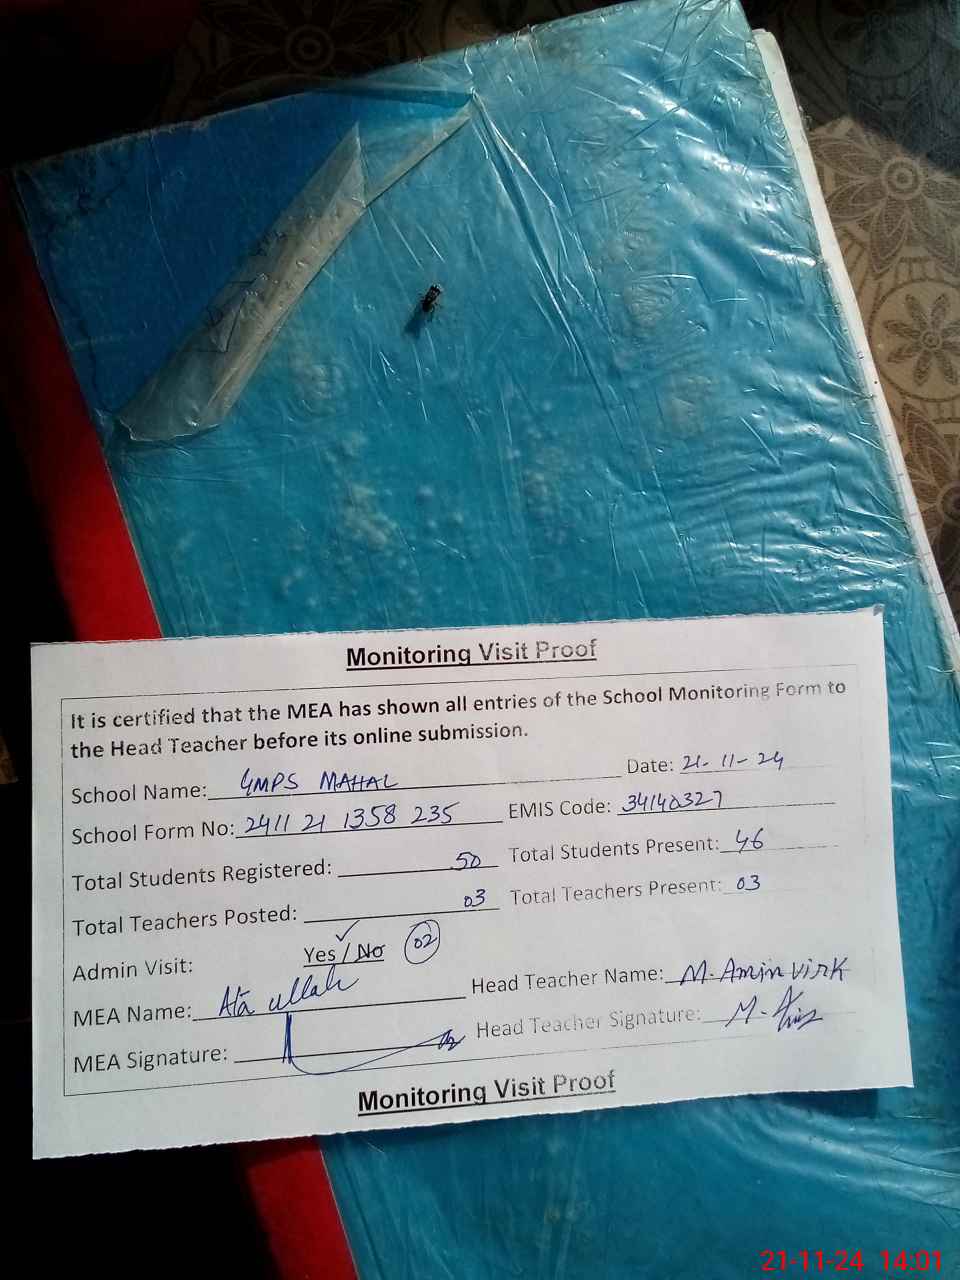 Monitoring Visit Proof
It is certified that the MEA has shown all entries of the School Monitoring Form to
the Head Teacher before its online submission.
School Name: GMPS MAHAL Date: 21-11-24
School Form No: 2411 21 1358 235 EMIS Code: 34140327
Total Students Registered: 50 Total Students Present: 46
Total Teachers Posted: 03 Total Teachers Present: 03
Admin Visit: Yes / No 02
MEA Name: Ata ullah Head Teacher Name: M. Amin Virk
MEA Signature: Head Teacher Signature: M.
Monitoring Visit Proof
21-11-24 14:01